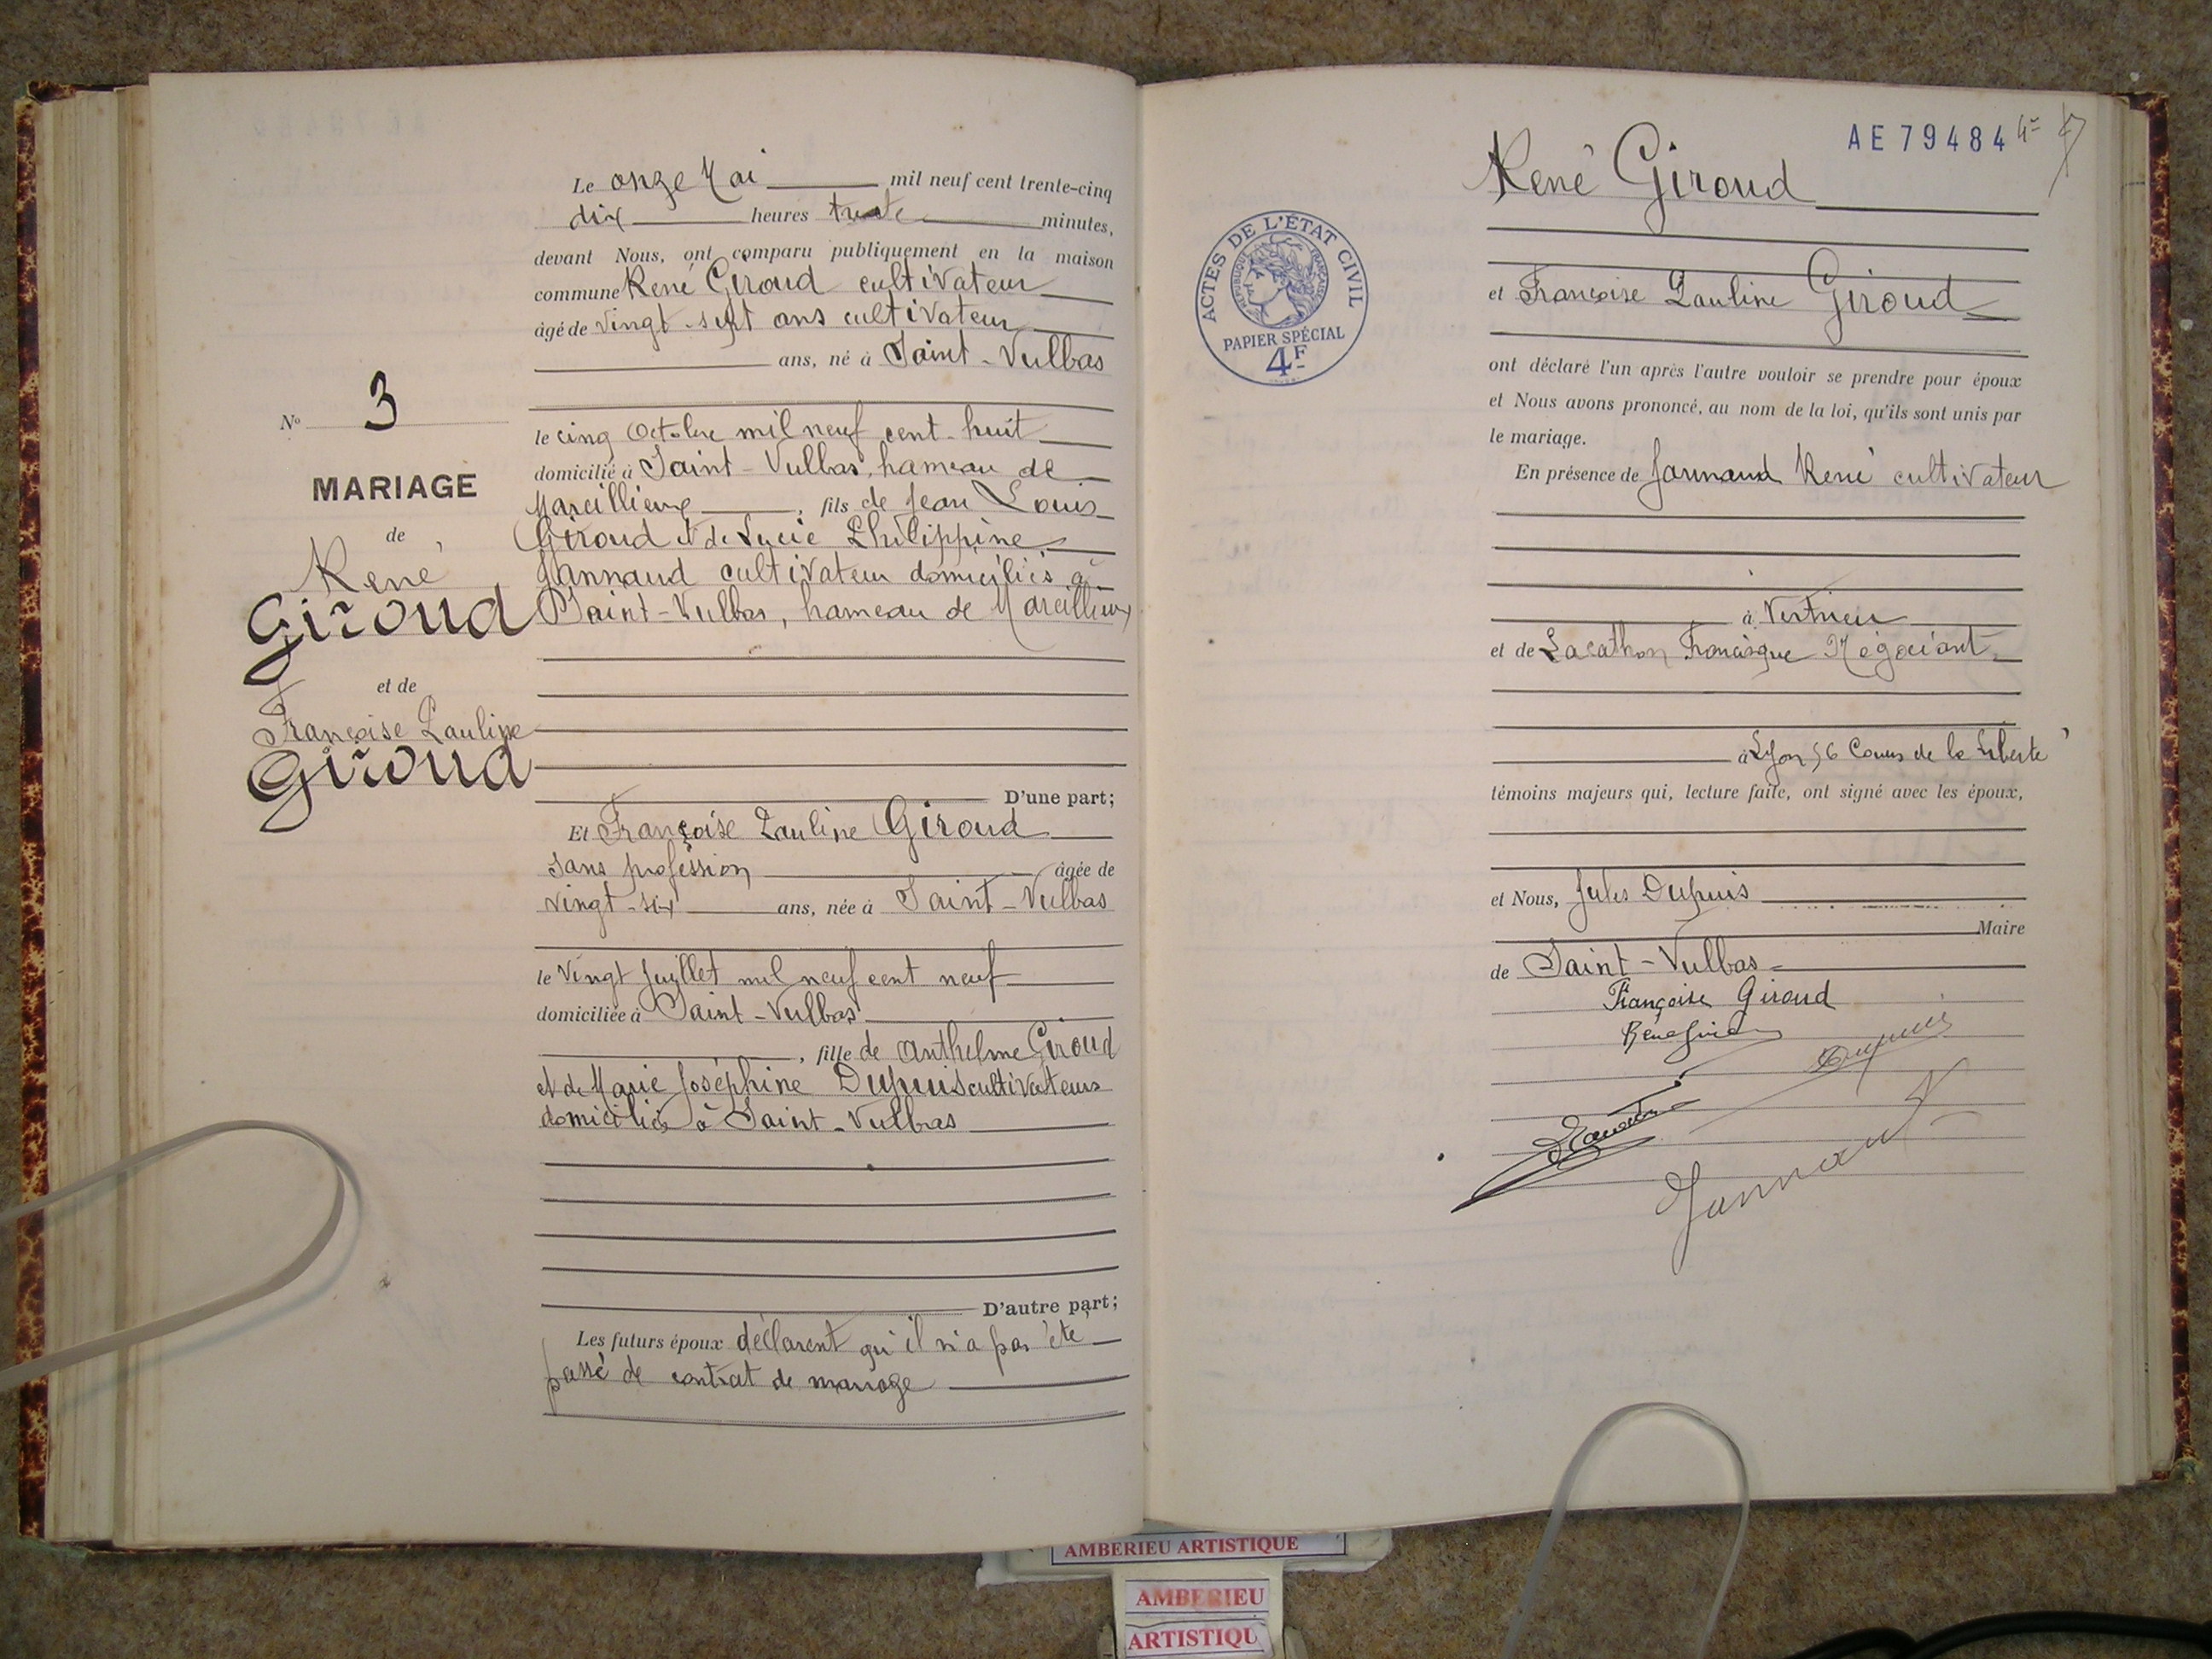 Le onze Mai mil neuf cent trente-cinq
dix heures trente minutes,
devant Nous, ont comparu publiquement en la maison
commune René Giroud cultivateur
âgé de vingt-sept ans cultivateur
ans, né à Saint-Vulbas
le cinq Octobre mil neuf cent huit
domicilié à Saint-Vulbas, hameau de
Marcillieux, fils de Jean Louis
Giroud et de Lucie Philippine
Jannaud cultivateur domiciliés à
Saint-Vulbas, hameau de Marcillieux
No 3
MARIAGE
de
René
Giroud
et de
Françoise Pauline
Giroud
D'une part;
Et Françoise Pauline Giroud
sans profession âgée de
vingt-six ans, née à Saint-Vulbas
le vingt Juillet mil neuf cent neuf
domiciliée à Saint-Vulbas
, fille de Anthelme Giroud
et de Marie Joséphine Dupuis cultivateurs
domiciliés à Saint-Vulbas
D'autre part;
Les futurs époux déclarent qu'il n'a pas été
passé de contrat de mariage
AE79484
René Giroud
ACTES DE L'ÉTAT CIVIL
RÉPUBLIQUE FRANÇAISE
PAPIER SPÉCIAL
4F
et Françoise Pauline Giroud
ont déclaré l'un après l'autre vouloir se prendre pour époux
et Nous avons prononcé, au nom de la loi, qu'ils sont unis par
le mariage.
En présence de Jannaud René cultivateur
à Vertrieu
et de Lacathon Francisque Négociant
à Lyon, 56 Cours de la Liberté
témoins majeurs qui, lecture faite, ont signé avec les époux,
et Nous, Jules Dupuis
Maire
de Saint-Vulbas
Françoise Giroud
René Giroud
Dupuis
Jannaud
AMBERIEU ARTISTIQUE
AMBERIEU
ARTISTIQU